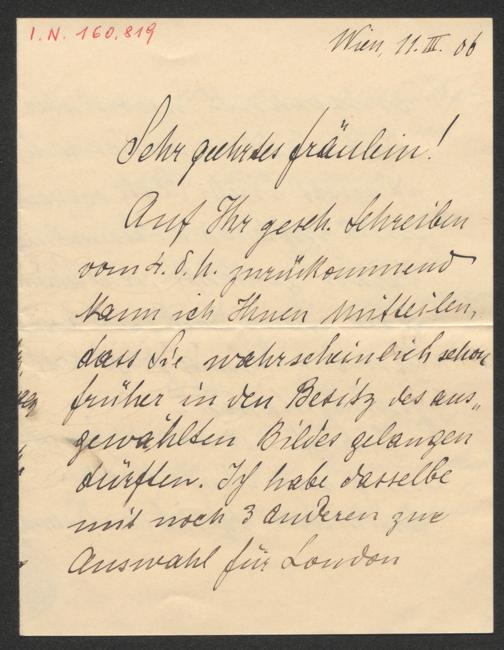 I. N. 160.819
Wien, 11. III. 06
Sehr geehrtes Fräulein!
Auf Ihr gesch. Schreiben
vom 4. d. M. zurückkommend
kann ich Ihnen mitteilen,
dass Sie wahrscheinlich schon
früher in den Besitz des aus„
gewählten Bildes gelangen
dürften. Ich habe dasselbe
mit noch 3 anderen zur
Auswahl für London